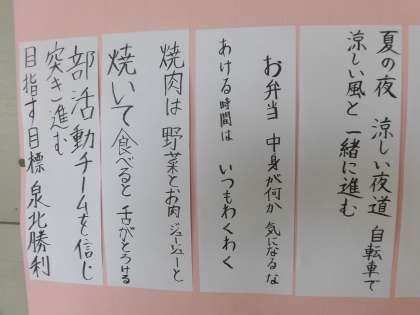 夏の夜 涼しい夜道 自転車で
涼しい風と 一緒に進む
お弁当 中身が何か 気になるな
あける時間は いつもわくわく
焼肉は 野菜とお肉 ジュージューと
焼いて食べると 舌がとろける
部活動チームを信じ
突き進む
目指す目標 泉北勝利